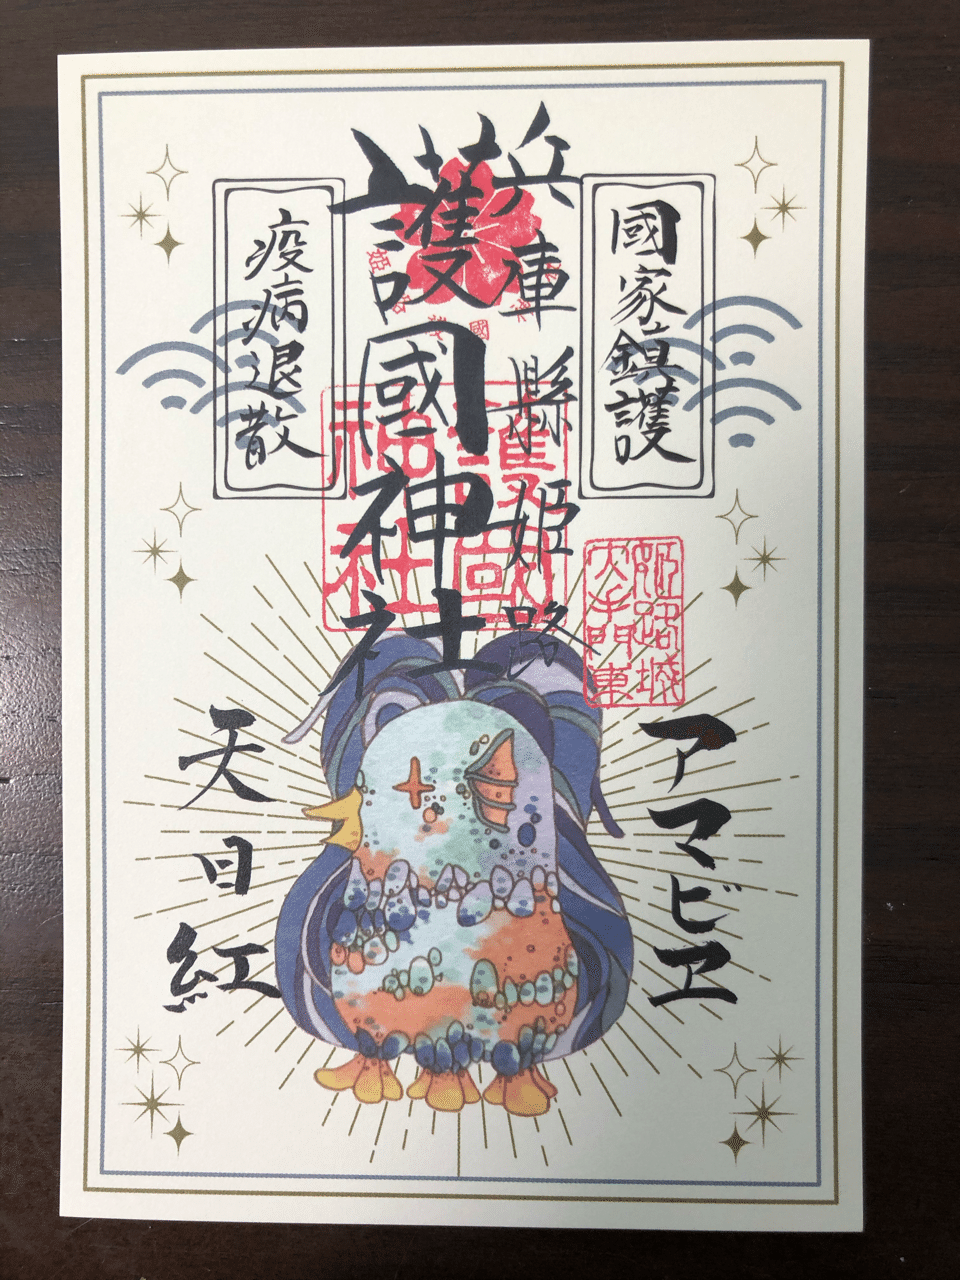 國家鎮護
兵庫縣姫路
護國神社
疫病退散
護國
神社
姫路城
大手門東
アマビヱ
天日紅